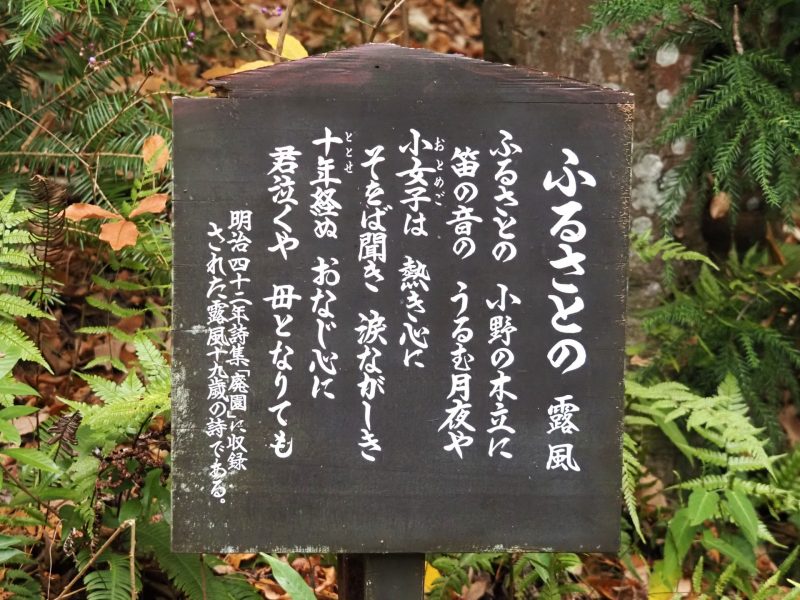 ふるさとの 露風
ふるさとの 小野の木立に
笛の音の うるむ月夜や
小女子は 熱き心に
おとめご
そをば聞き 涙ながしき
十年経ぬ おなじ心に
ととせ
君泣くや 母となりても
明治四十二年詩集「廃園」に収録
された露風十九歳の詩である。